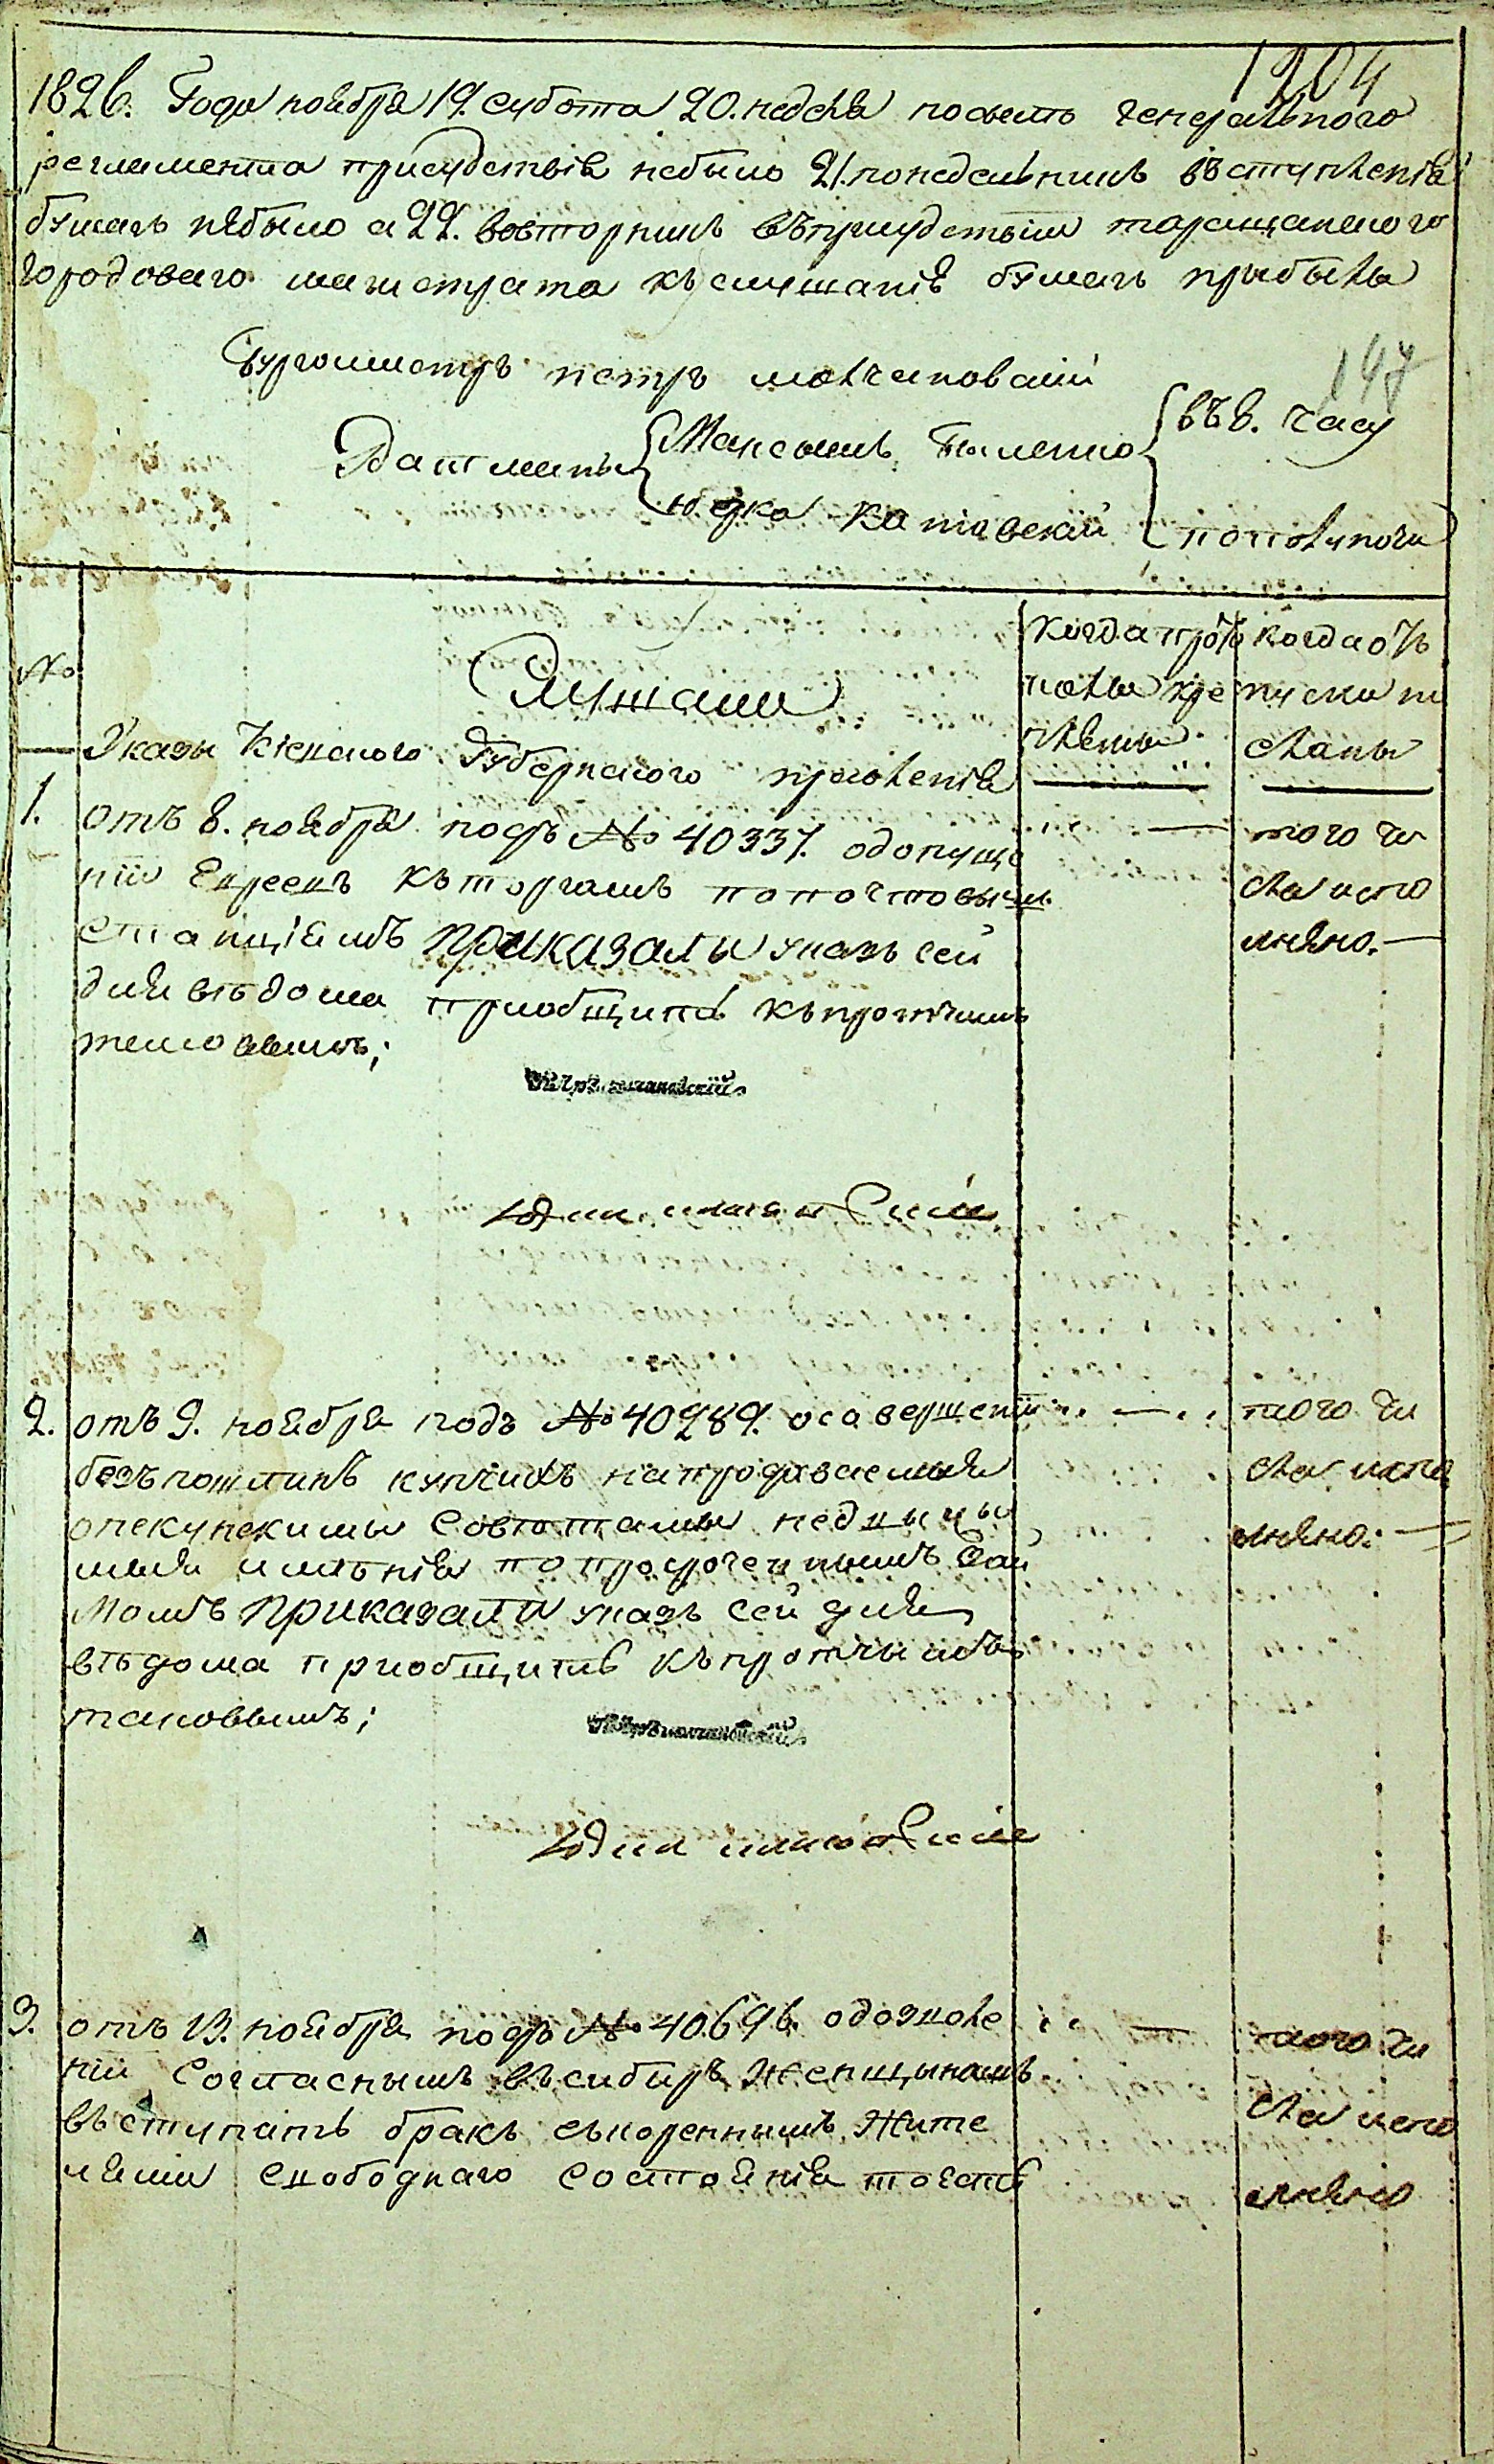 1204
1826. Года ноября 19. субота 20. неделя посилѣ генерального
регламента присудствія небыло 21. понедельникъ въступленія
бумагъ небыло а 22. вовторникъ въприсудствіи таращанского
городоваго магистрата къслушанію бумагъ прибыли
147
Бургомистръ петръ молчановскій
въ 8. часу
Ратманы Максымъ
юдка каневскій
пополуночи
№
Слушали
когда прото
колы кре
плены
когда от
пуски пи
саны
Указы Кіевского Губернского правленія
1. отъ 8. ноября подъ № 40337. одопуще
ніи Евреевъ къторгамъ попочтовымъ
станціямъ приказали указъ сей
для вѣдома приобщить къпротчимъ
таковымъ;
того чи
сла испо
лнено.
2. отъ 9. ноября подъ № 40289. осавершеніи
безъпошлинъ купчихъ напродаваемыя
опекунскимы Советамы недвыжы
мыя имѣнія попросроченнымъ Зай
Момъ приказали указъ сей для
вѣдома приобщить къпротчымъ
таковымъ;
того чи
сла испо
лнено.
3. отъ 13. ноября подъ № 40.696. одозволе
ніи Согласнымъ въсибирѣ Женщынамъ
въступать бракъ скореннымъ Жите
лями Свободнаго Состоянія тоесть
того чи
сла испо
лнено